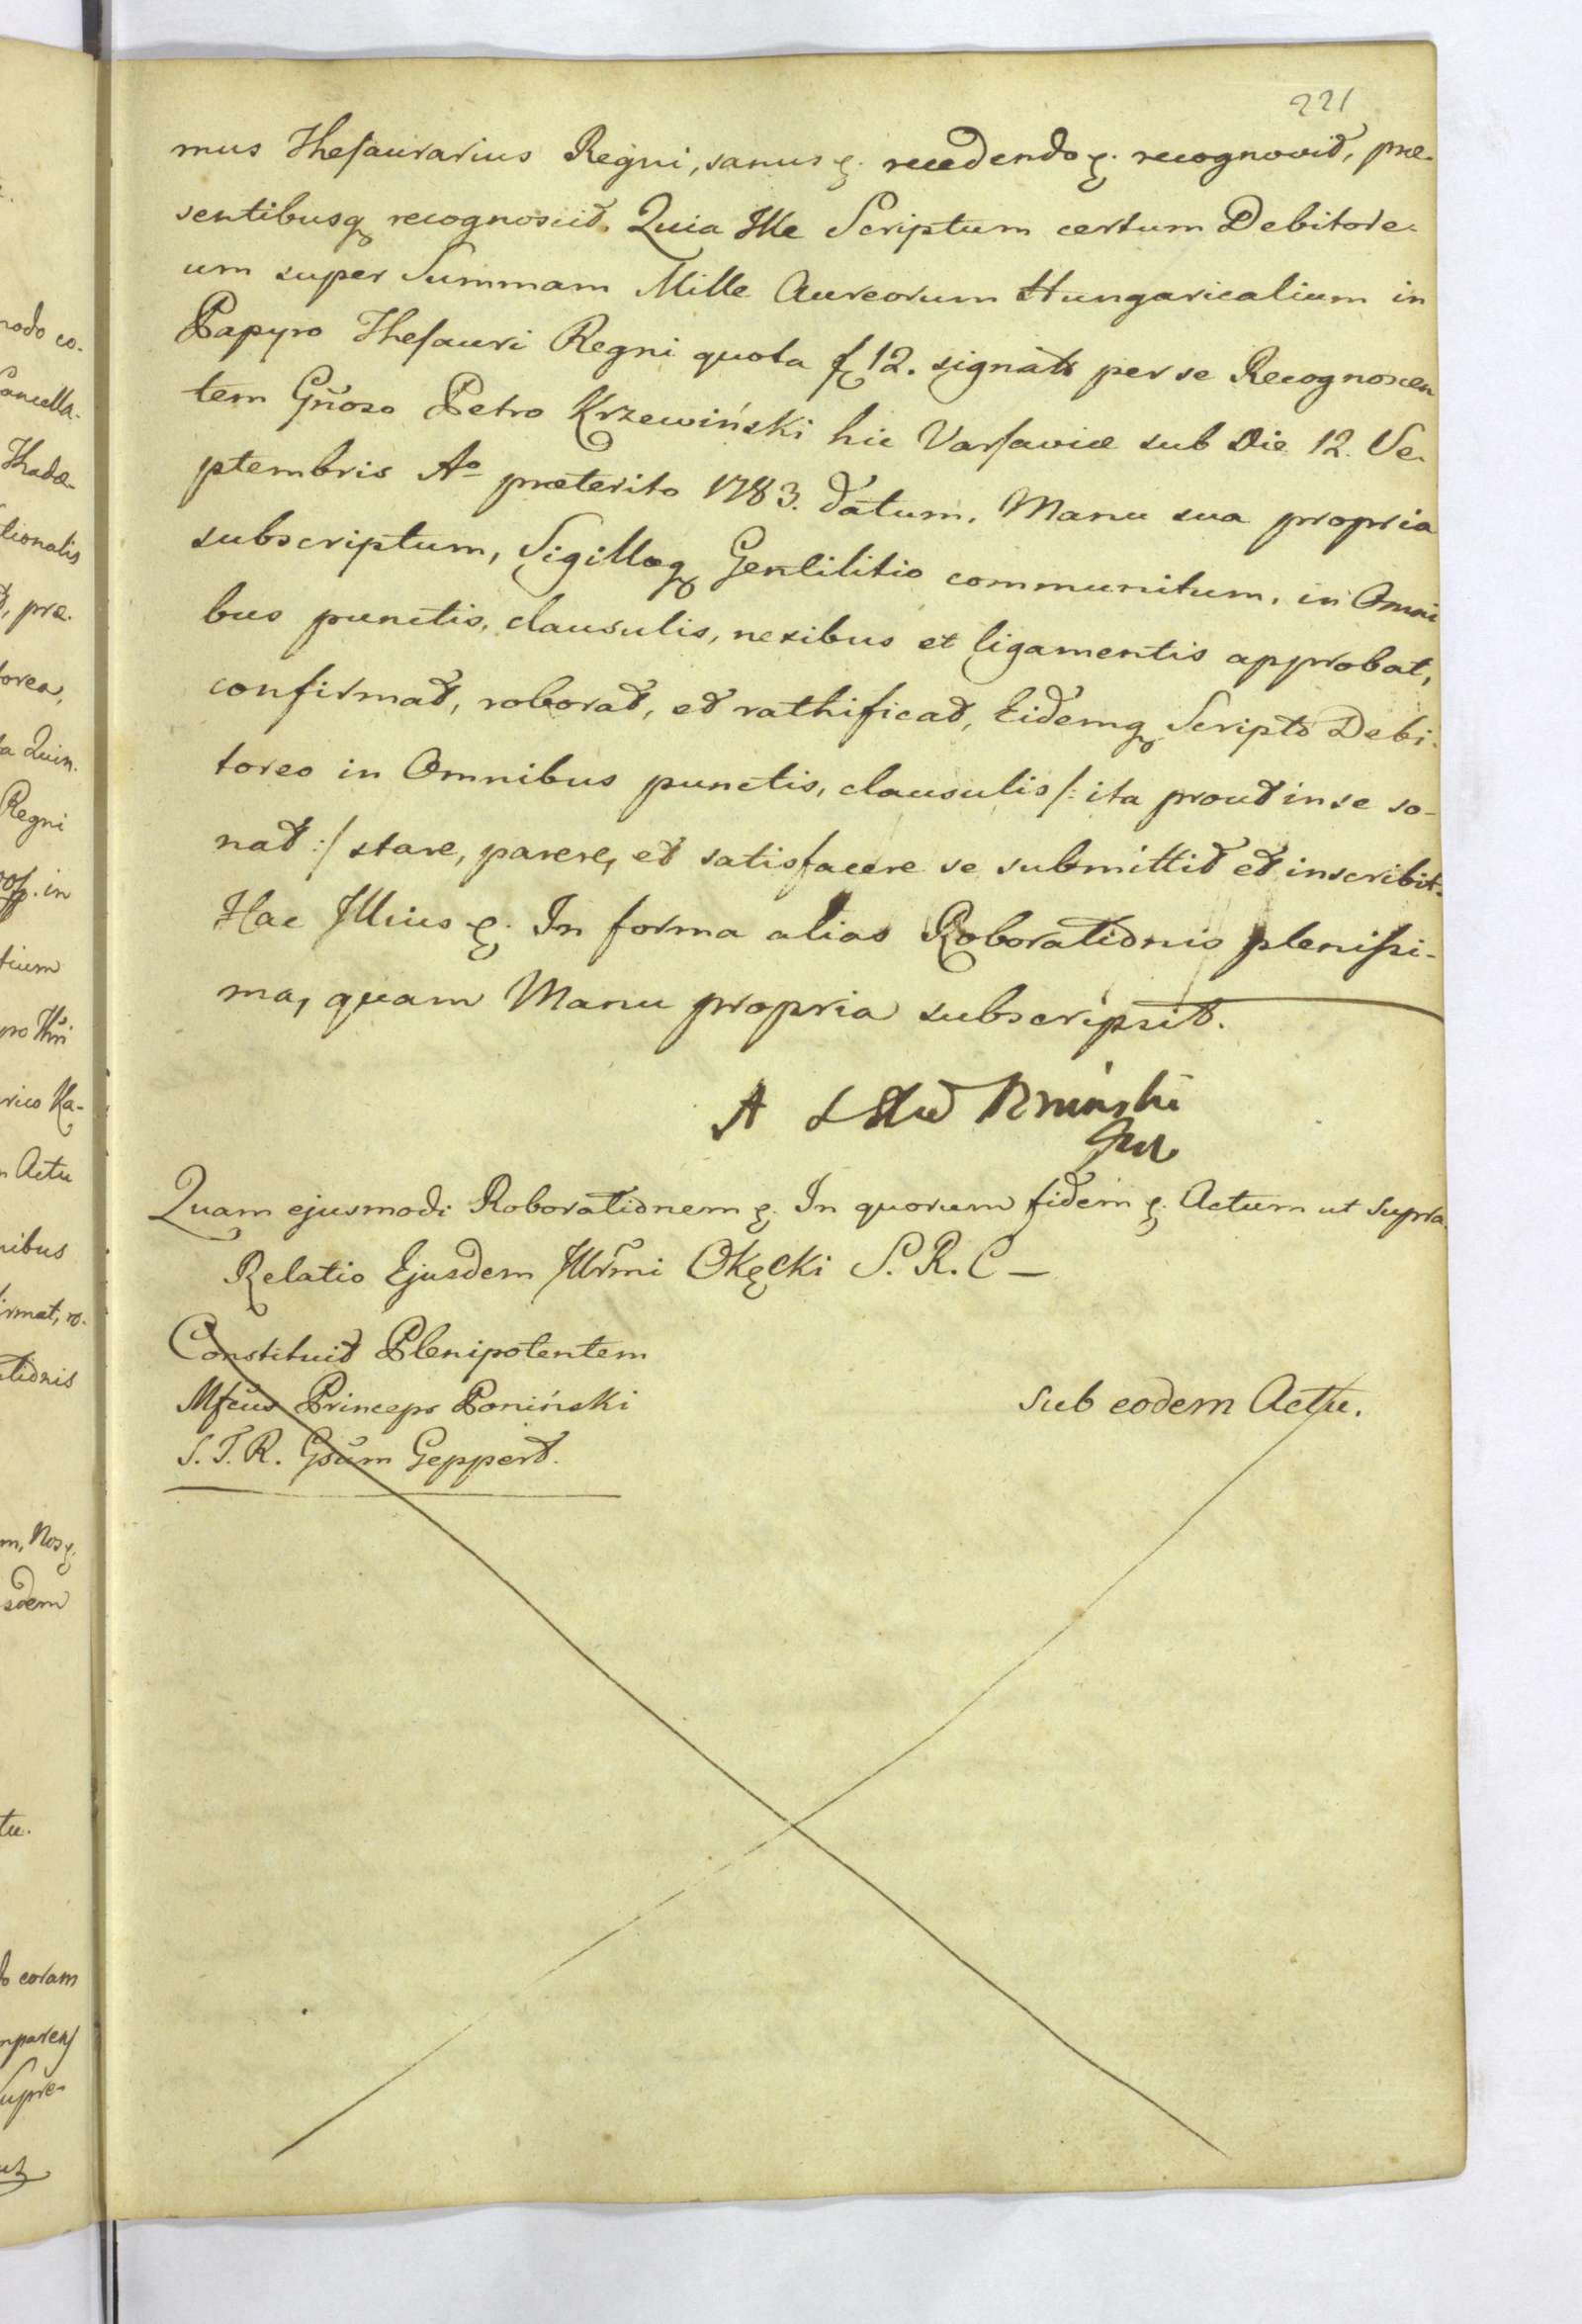 221
mus Thesaurarius Regni, sanus &. recedendo &. recognovit, præ-
sentibusq recognoscit. Quia Ille Scriptum certum Debitore-
um super Summam Mille Aureorum Hungaricalium in
Papyro Thesauri Regni quota f 12. signato per se Recognoscen
tem Gñoso Petro Krzewiński hic Varsaviæ sub Die 12. Se-
ptembris Aº præterito 1783. datum, Manu sua propria
subscriptum, Sigilloq Gentilitio communitum, in Omni
bus punctis, clausulis, nexibus et ligamentis approbat,
confirmat, roborat, et rathificat, Eidemq Scripto Debi-
toreo in Omnibus punctis, clausulis /: ita prout in se so-
nat :/ stare, parere, et satisfacere se submittit et inscribit.
Hac Illius &. In forma alias Roborationis plenissi-
ma, quam Manu propria subscripsit.
A Poniński
Quam ejusmodi Roborationem &. In quorum fidem &. Actum ut supra.
Relatio Ejusdem Illrmi Okęcki S. R. C –
Constituit Plenipotentem
Mfcus Princeps Poniński
S. T. R. Gsum Geppert.
Sub eodem Actu.
nodo co-
Cancella-
Thadæ-
tionalis
, præ-
torea,
ta Quin-
Regni
in
tium
rico Ka-
Actu
nibus
irmat, ro-
tionis
m, Nos &.
sdem
tu.
coram
mparens
Supre-